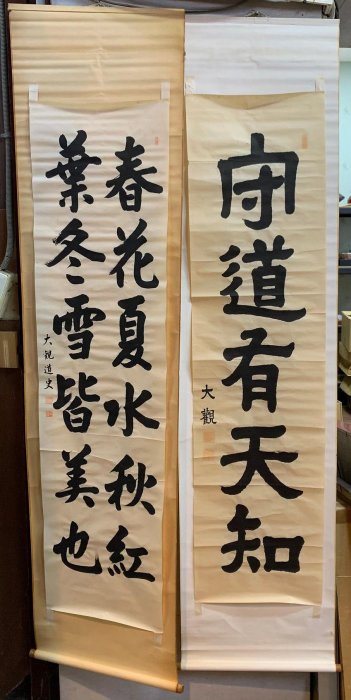 守道有天知
大觀
春花夏水秋紅
葉冬雪皆美也
大觀道史